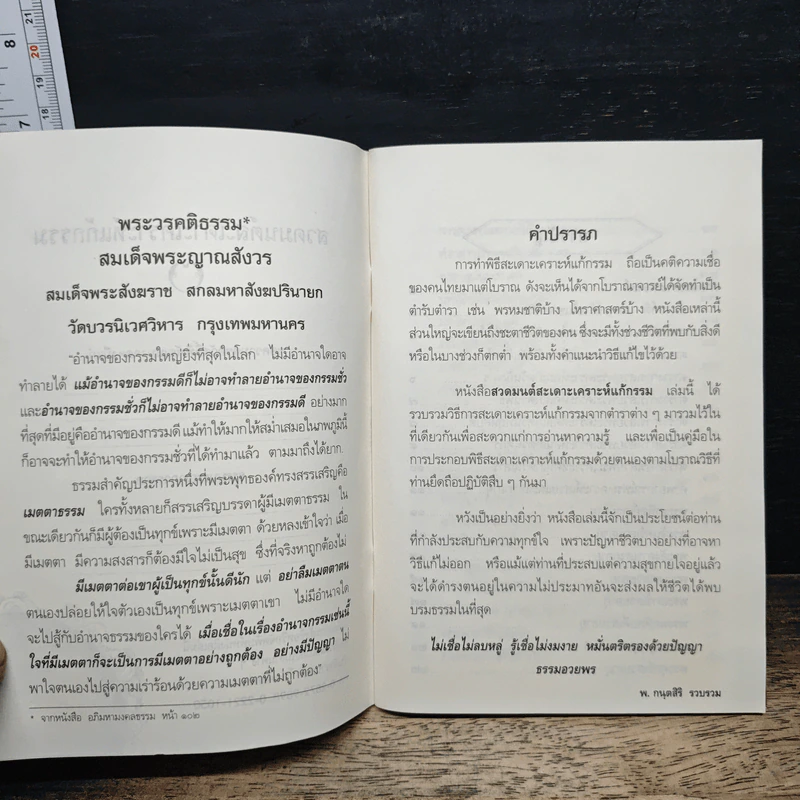 พระวรคติธรรม*
สมเด็จพระญาณสังวร
สมเด็จพระสังฆราช สกลมหาสังฆปรินายก
วัดบวรนิเวศวิหาร กรุงเทพมหานคร
"อำนาจของกรรมใหญ่ยิ่งที่สุดในโลก ไม่มีอำนาจใดอาจ
ทำลายได้ แม้อำนาจของกรรมดีก็ไม่อาจทำลายอำนาจของกรรมชั่ว
และอำนาจของกรรมชั่วก็ไม่อาจทำลายอำนาจของกรรมดี อย่างมาก
ที่สุดที่มีอยู่คืออำนาจของกรรมดี แม้ทำให้มากให้สม่ำเสมอในภพภูมินี้
ก็อาจจะทำให้อำนาจของกรรมชั่วที่ได้ทำมาแล้ว ตามมาถึงได้ยาก
ธรรมสำคัญประการหนึ่งที่พระพุทธองค์ทรงสรรเสริญคือ
เมตตาธรรม ใครทั้งหลายก็สรรเสริญบรรดาผู้มีเมตตาธรรม ใน
ขณะเดียวกันก็มีผู้ต้องเป็นทุกข์เพราะมีเมตตา ด้วยหลงเข้าใจว่า เมื่อ
มีเมตตา มีความสงสารก็ต้องมีใจไม่เป็นสุข ซึ่งที่จริงหาถูกต้องไม่
มีเมตตาต่อเขาผู้เป็นทุกข์นั้นดีนัก แต่ อย่าลืมเมตตาตน
ตนเองปล่อยให้ใจตัวเองเป็นทุกข์เพราะเมตตาเขา ไม่มีอำนาจใด
จะไปสู้กับอำนาจธรรมของใครได้ เมื่อเชื่อในเรื่องอำนาจกรรมเช่นนี้
ใจที่มีเมตตาก็จะเป็นการมีเมตตาอย่างถูกต้อง อย่างมีปัญญา ไม่
พาใจตนเองไปสู่ความเร่าร้อนด้วยความเมตตาที่ไม่ถูกต้อง"
* จากหนังสือ อภิมหามงคลธรรม หน้า ๑๐๒
คำปรารภ
การทำพิธีสะเดาะเคราะห์แก้กรรม ถือเป็นคติความเชื่อ
ของคนไทยมาแต่โบราณ ดังจะเห็นได้จากโบราณาจารย์ได้จัดทำเป็น
ตำรับตำรา เช่น พรหมชาติบ้าง โหราศาสตร์บ้าง หนังสือเหล่านี้
ส่วนใหญ่จะเขียนถึงชะตาชีวิตของคน ซึ่งจะมีทั้งช่วงชีวิตที่พบกับสิ่งดี
หรือในบางช่วงก็ตกต่ำ พร้อมทั้งคำแนะนำวิธีแก้ไขไว้ด้วย
หนังสือสวดมนต์สะเดาะเคราะห์แก้กรรม เล่มนี้ ได้
รวบรวมวิธีการสะเดาะเคราะห์แก้กรรมจากตำราต่าง ๆ มารวมไว้ใน
ที่เดียวกันเพื่อสะดวกแก่การอ่านหาความรู้ และเพื่อเป็นคู่มือใน
การประกอบพิธีสะเดาะเคราะห์แก้กรรมด้วยตนเองตามโบราณวิธีที่
ท่านยึดถือปฏิบัติสืบ ๆ กันมา
หวังเป็นอย่างยิ่งว่า หนังสือเล่มนี้จักเป็นประโยชน์ต่อท่าน
ที่กำลังประสบกับความทุกข์ใจ เพราะปัญหาชีวิตบางอย่างที่อาจหา
วิธีแก้ไม่ออก หรือแม้แต่ท่านที่ประสบแต่ความสุขกายใจอยู่แล้ว
จะได้ดำรงตนอยู่ในความไม่ประมาทอันจะส่งผลให้ชีวิตได้พบ
บรมธรรมในที่สุด
ไม่เชื่อไม่ลบหลู่ รู้เชื่อไม่งมงาย หมั่นตริตรองด้วยปัญญา
ธรรมอวยพร
พ. กนฺตสิริ รวบรวม
8
7
21
20
19
18